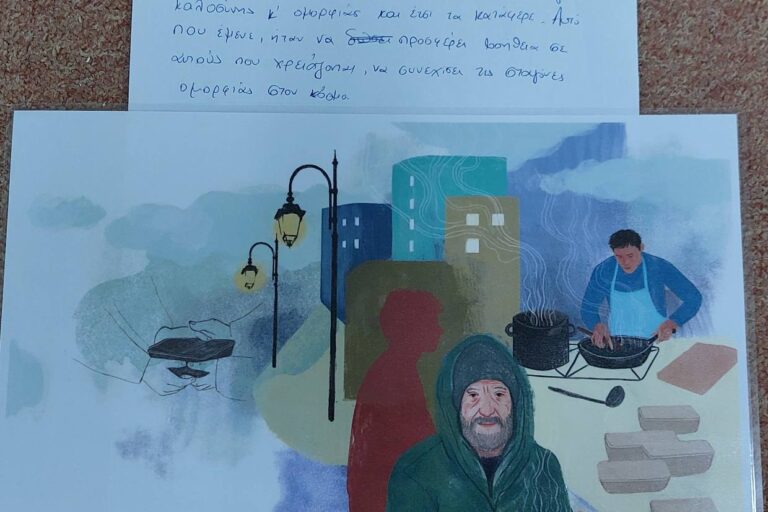 καλοσύνης κ' ομορφιάς και έτσι τα κατάφερε. Αυτό
που έμενε, ήταν να προσφέρει βοήθεια σε
αυτούς που χρειάζονται, να συνεχίσει τις σταγόνες
ομορφιάς στον κόσμο.